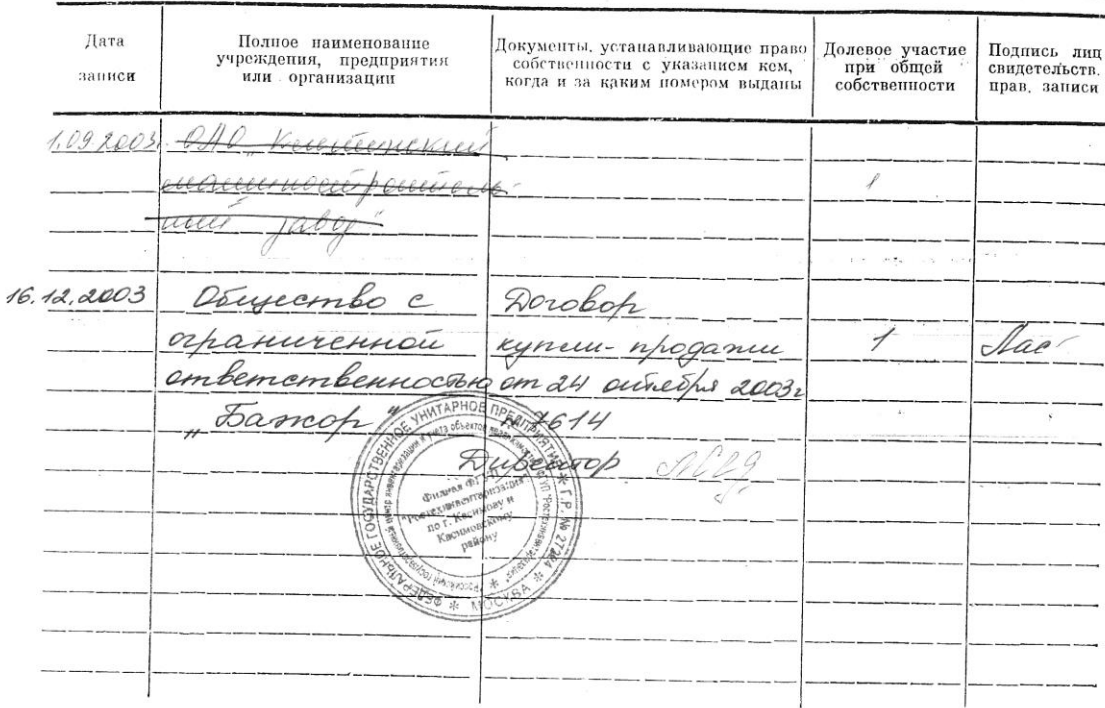 Дата записи
Полное наименование учреждения, предприятия или организации
Документы, устанавливающие право собственности с указанием кем, когда и за каким номером выданы
Долевое участие при общей собственности
Подпись лиц свидетельств. прав. записи
1.09.2003. ОАО
завод"
1
16.12.2003 Общество с Договор
ограниченной купли-продажи 1
ответственностью от 24 октября 2003г
„Бажор" 7614
Директор
ФЕДЕРАЛЬНОЕ ГОСУДАРСТВЕННОЕ УНИТАРНОЕ ПРЕДПРИЯТИЕ * Г.Р. № * МОСКВА *
Филиал ФГУП
"Ростехинвентаризация"
по г. Касимову и
Касимовскому
району